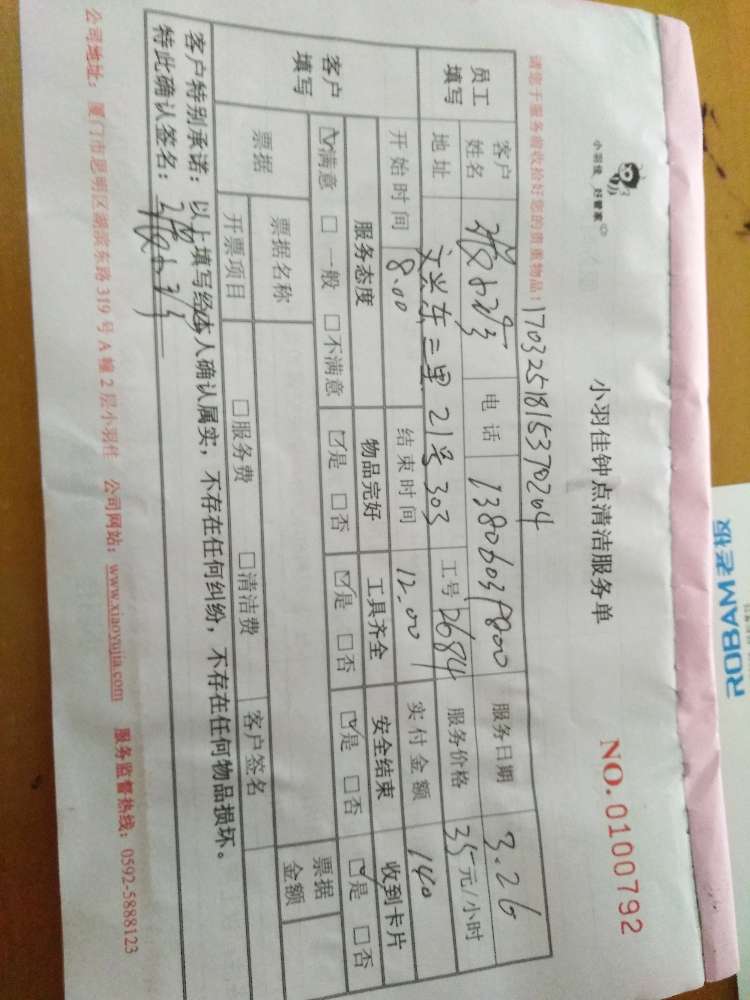 小羽佳 好管家
小羽佳钟点清洁服务单
NO.0100792
请您于服务前收拾好您的贵重物品:17032518153 70204
员工填写 客户姓名 电话 服务日期 3.26
地址 文兴东三里21号303 工号 2684 服务价格 35元/小时
开始时间 8.00 结束时间 12.00 实付金额 140
客户填写 服务态度 物品完好 工具齐全 安全结束 收到卡片
☑满意 □一般 □不满意 ☑是 □否 ☑是 □否 ☑是 □否 ☑是 □否
票据 票据名称 客户签名 票据金额
开票项目 □服务费 □清洁费
客户特别承诺:以上填写经本人确认属实,不存在任何纠纷,不存在任何物品损坏。
特此确认签名:
公司地址:厦门市思明区湖滨东路319号A幢2层小羽佳 公司网站:www.xiaoyujia.com 服务监督热线:0592-5888123
ROBAM老板